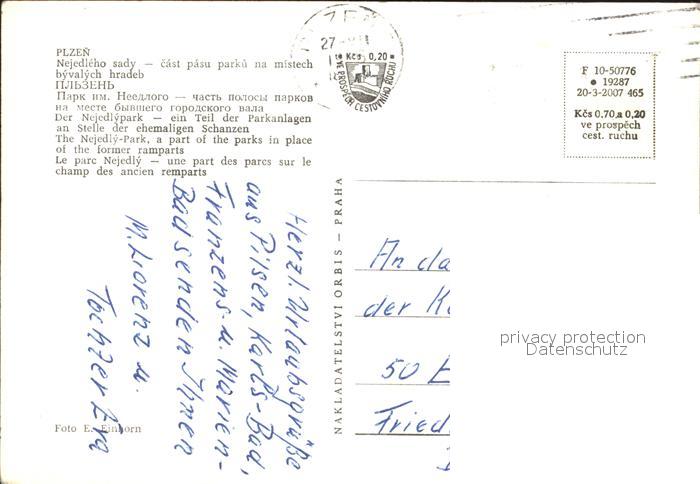 PLZEŇ
Nejedlého sady — část pásu parků na místech
bývalých hradeb
ПЛЬЗЕНЬ
Парк им. Неедлого — часть полосы парков
на месте бывшего городского вала
Der Nejedlýpark — ein Teil der Parkanlagen
an Stelle der ehemaligen Schanzen
The Nejedlý-Park, a part of the parks in place
of the former ramparts
Le parc Nejedlý — une part des parcs sur le
champ des ancien remparts
27
Kčs 0,20
VE PROSPĚCH CESTOVNÍHO RUCHU
F 10-50776
19287
20-3-2007 465
Kčs 0,70 a 0,20
ve prospěch
cest. ruchu
Herzl. Urlaubsgrüße
aus Pilsen, Karls-Bad,
Franzens- u. Marien-
Bad senden Ihnen
M. Lorenz u.
Tochter
NAKLADATELSTVÍ ORBIS — PRAHA
An da
der K
50 E
Fried
privacy protection
Datenschutz
Foto E. Einhorn